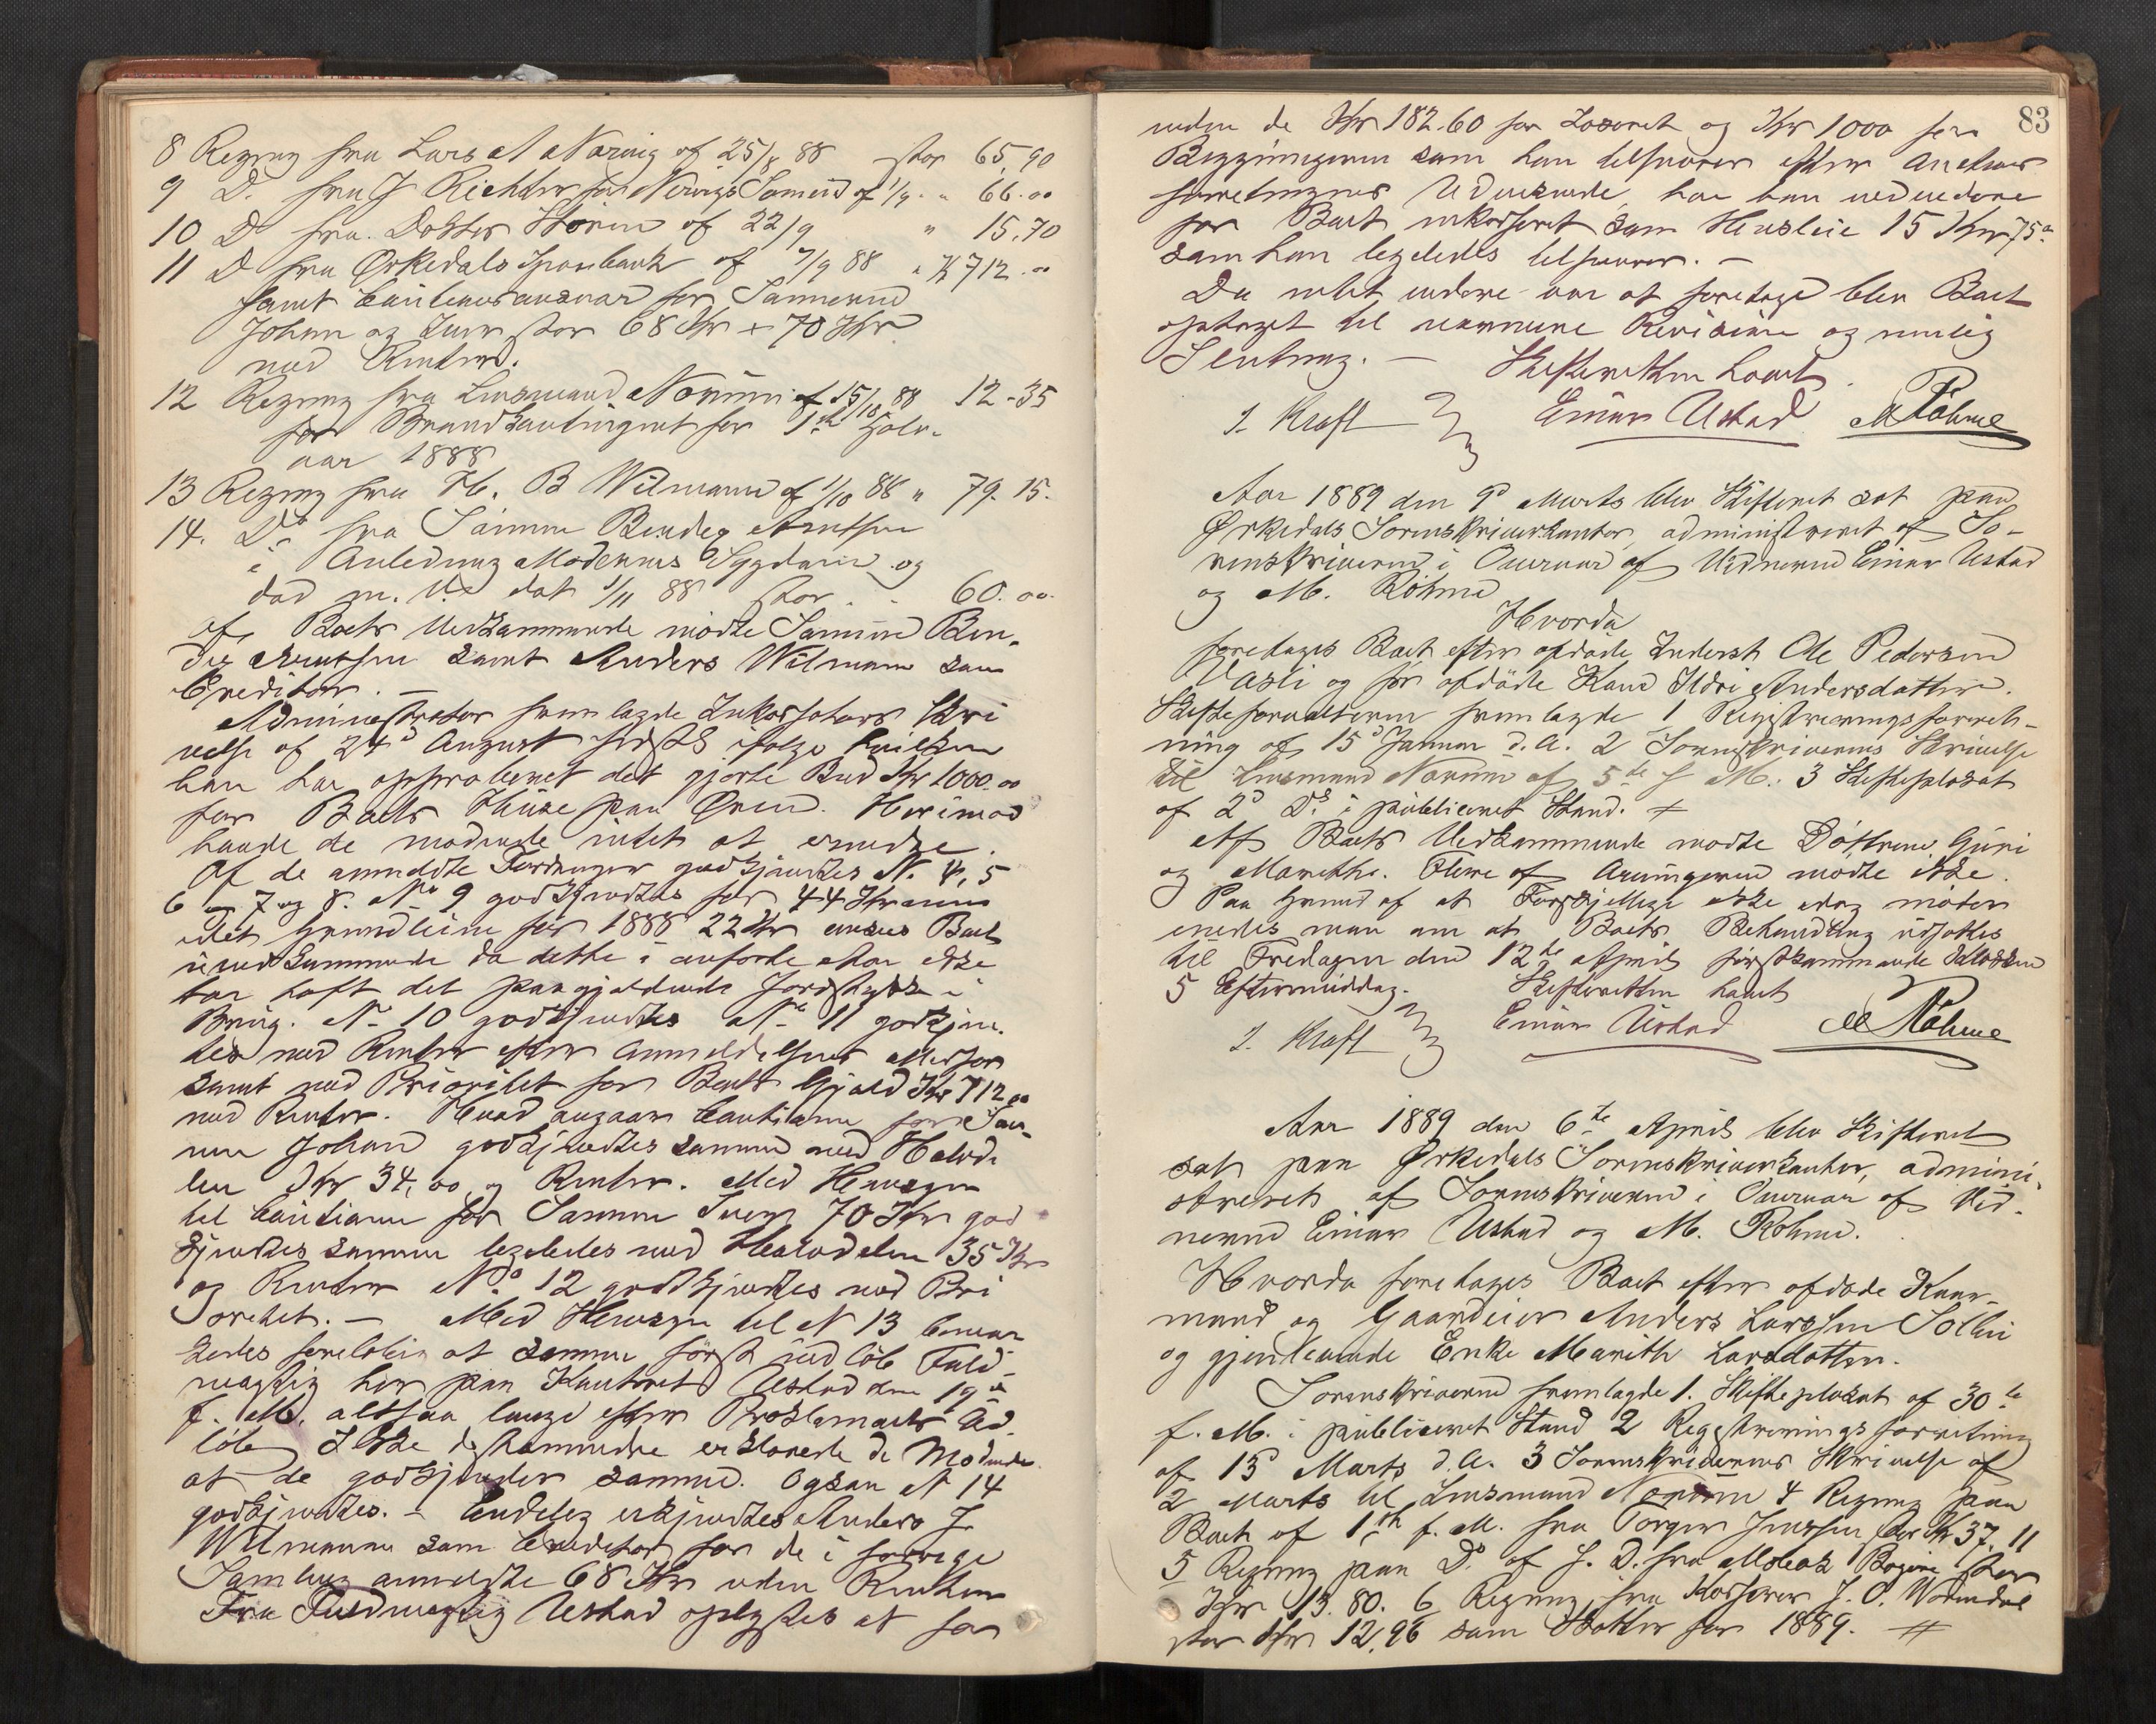 8 Regning fra Lars A Nærvig af 25/8 88 stor 65,90
9 D. fra J Richter for Nervigs Sømænd af 1/9 " 66.00
10 D fra Doktor Støren af 22/9 " 15,70
11 D fra Ørkedals Sparebank af 7/9 88 " Kr 712.00
samt Cautionsansvar for Sønnerne
Johan og Iver stor 68 Kr + 70 Kr
med Renter.
12 Regning fra Lensmand Norum af 15/10 88 12-35
for Brandkontingent for 1ste Halv-
aar 1888
13 Regning fra H. B Wilmann af 1/10 88 " 79.15.
14. Do fra Sønnen Bendeg Arntsen
i Anledning Moderens Sygdom og
død m. V. dat 1/11 88 stor . . 60.00
Af Boets Vedkommende mødte Sønnen Ben-
deg Arntsen samt Anders Wilmann som
Creditor. —
Administrator fremlagde Inkassators Skri
velse af 24d August sidstl ifølge hvilken
han har approberet det gjorte Bud Kr 1000.00
for Boets Huse paa Øren. Herimod
havde de mødende intet at erindre.
Af de anmeldte Fordringer godkjendtes No 4, 5
6 og 7 og 8. No 9 godkjendtes for 44 Kroner
idet Grundleien for 1888 22 Kr ansees Boet
uvedkommende da dette i anførte Aar ikke
har haft det paagjældende Jordstykke i
Brug. No 10 godkjendtes No 11 godkjen-
tes med Renter efter Anmeldelsens Medfør
samt med Prioritet for Boets Gjæld Kr 712.00
med Renter. Hvad angaar Cautionen for Søn-
nen Johan godkjendtes samme med Halvde
len Kr 34,00 og Renter. Med Hensyn
til Cautionen for Sønnen Iver 70 Kr god
kjendtes samme ligeledes med Halvdelen 35 Kr
og Renter No 12 godkjendtes med Pri
oritet. — Med Hensyn til N 13 bemær
kedes foreløbig at samme først indløb Fuld-
mægtig her paa Kontoret Ustad den 19de
f. M. altsaa længe efter Proklamaets Ud
løb Ikke destomindre erklærede de Mødende
at de godkjender samme. Ogsaa N 14
godkjendtes. — Endelig erkjendtes Anders J.
Wilmann som Creditor for de i forrige
Samling anmeldte 68 Kr uden Renter
Fra Fuldmægtig Ustad oplystes at for
83
uden de Kr 182.60 for Løsøret og Kr 1000 for
Bygningerne som han tilsvarer efter Auctions
forretningens Udvisende, har han ved videre
for Boet inkasseret som Husleie 15 Kr 75 ø
som han ligeledes tilsvarer. —
Da intet videre var at foretage blev Boet
optaget til nærmere Revision og mulig
Slutning. — Skifteretten hævet.
I. Kraft Einar Ustad M Røhme
Aar 1889 den 9d Marts blev Skifteret sat paa
Ørkedals Sorenskriverkontor, administreret af So-
renskriveren i Overvær af Vidnerne Einar Ustad
og M. Røhme
Hvorda
foretages Boet efter afdøde Inderst Ole Pedersen
Vasli og før afdøde Kone Ildri Andersdatter.
Skifteforvalteren fremlagde 1 Registreringsforret-
ning af 15d Januar d. A. 2 Sorenskriverens Skrivelse
til Lensmand Norum af 5te f M. 3 Skifteplakat
af 2d Ds i publiceret Stand. #
Af Boets Vedkommende mødte Døttrene Guri
og Marethe. Flere af Arvingerne mødte ikke.
Paa Grund af at Forskjellige ikke idag møder
enedes man om at Boets Behandling udsættes
til Fredagen den 12te April førstkommende Klokken
5 Eftermiddag. Skifteretten hævet
I. Kraft Einar Ustad M Røhme
Aar 1889 den 6te April blev Skifteret
sat paa Ørkedals Sorenskriverkontor, admini-
streret af Sorenskriveren i Overvær af Vid-
nerne Einar Ustad og M. Røhme.
Hvorda foretages Boet efter afdøde Kaar-
mand og Gaardeier Anders Larssen Solbu
og gjenlevende Enke Marith Larsdatter.
Sorenskriveren fremlagde 1. Skifteplakat af 30te
f. M. i publiceret Stand 2 Registreringsforretning
af 13d Marts d. A. 3 Sorenskriverens Skrivelse af
2 Marts til Lensmand Norum 4 Regning paa
Boet af 1ste f. M. fra Torger Jenssen stor Kr 37.11
5 Regning paa Do af s. D. fra stor
Kr 13.80. 6 Regning fra Kasserer J. O.
stor Kr 12,96 som Skatter for 1889. #